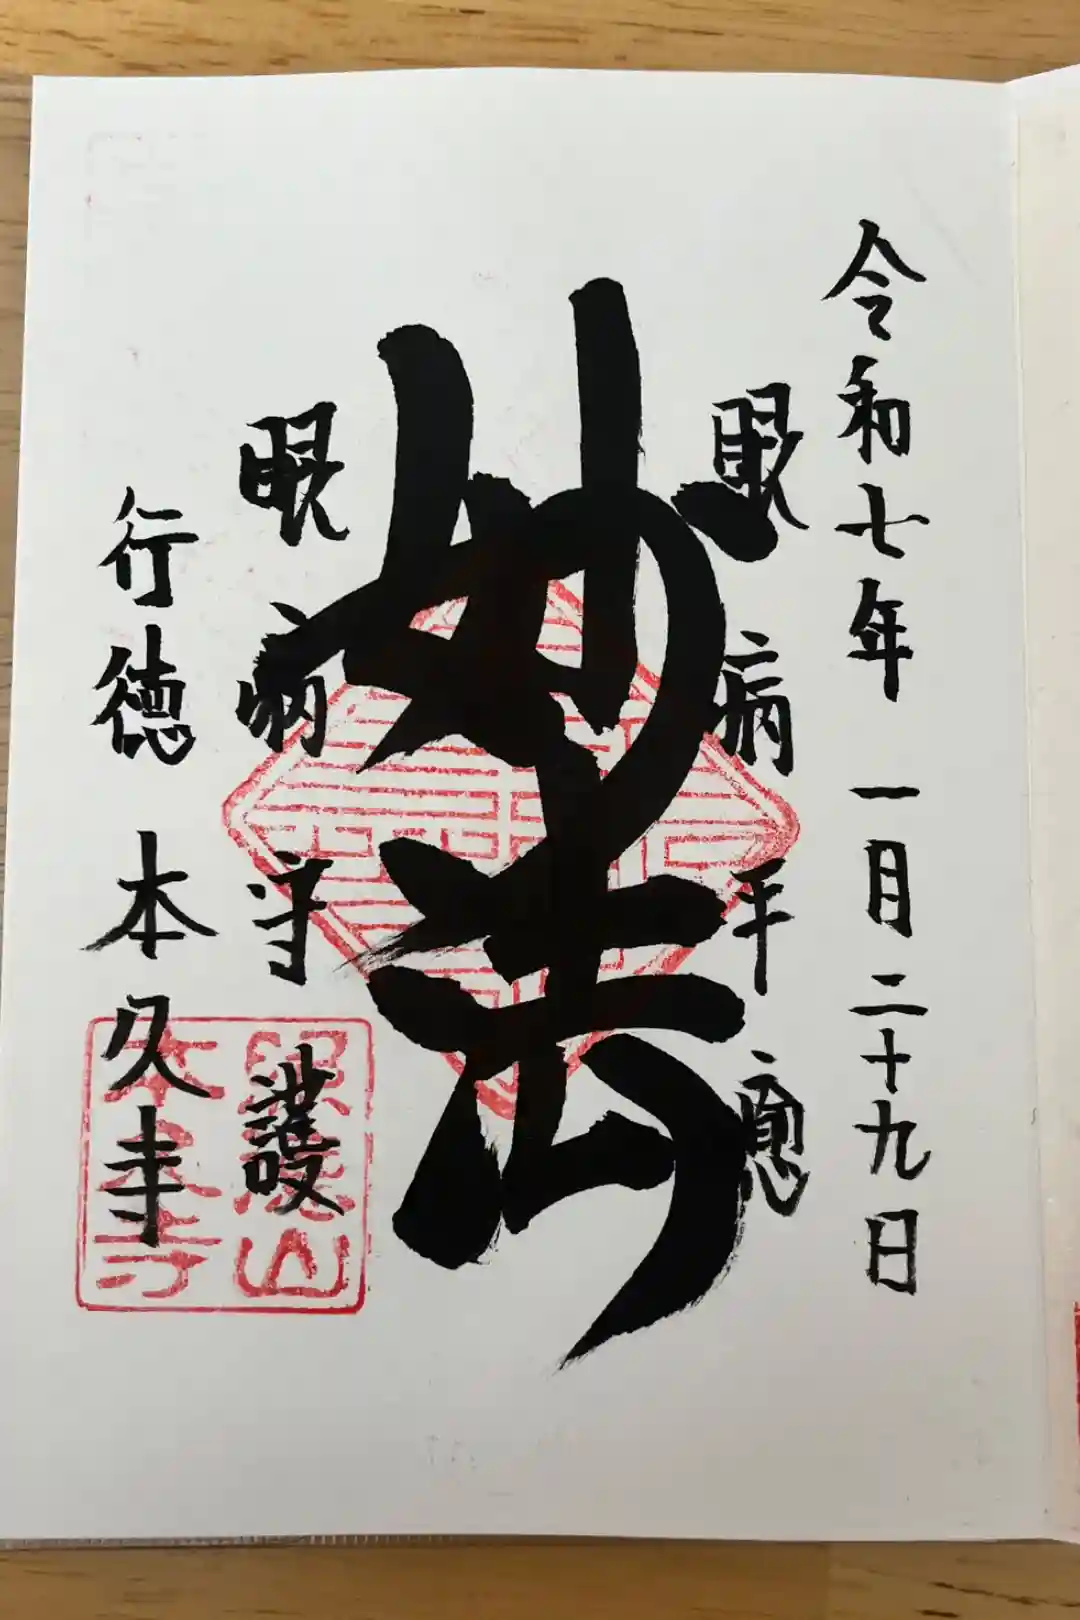 令和七年 一月二十九日
眼病平癒
妙法
眼病守護
行徳 本久寺
照徳山
本久寺